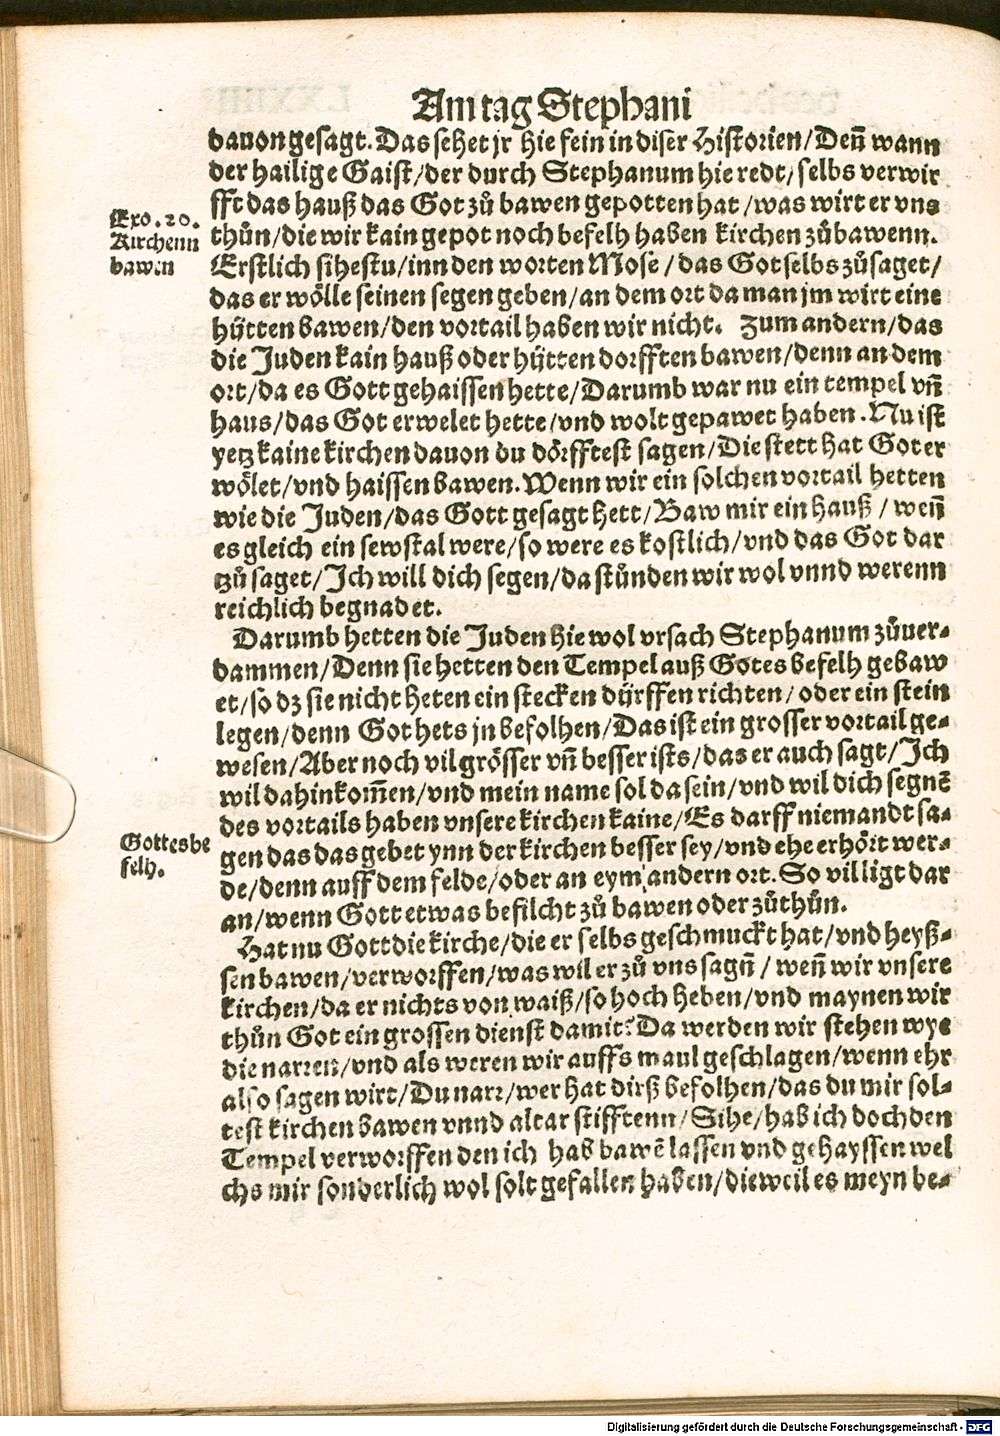 Am tag Stephani
dauon gesagt. Das sehet jr hie fein in diser Historien/Deñ wann
der hailige Gaist/der durch Stephanum hie redt/selbs verwir
fft das hauß das Got zů bawen gepotten hat/was wirt er vns
Exo. 20.
Kirchenn
bawen
thůn/die wir kain gepot noch befelh haben kirchen zůbawenn.
Erstlich sihestu/inn den worten Mose/das Got selbs zůsaget/
das er wölle seinen segen geben/an dem ort da man jm wirt eine
hütten bawen/den vortail haben wir nicht. Zum andern/das
die Juden kain hauß oder hütten dorfften bawen/denn an dem
ort/da es Gott gehaissen hette/Darumb war nu ein tempel vñ
haus/das Got erwelet hette/vnd wolt gepawet haben. Nu ist
yetz kaine kirchen dauon du dörfftest sagen/Die stett hat Got er
wölet/vnd haissen bawen. Wenn wir ein solchen vortail hetten
wie die Juden/das Gott gesagt hett/Baw mir ein hauß/weñ
es gleich ein sewstal were/so were es kostlich/vnd das Got dar
tzů saget/Ich will dich segen/da stůnden wir wol vnnd werenn
reichlich begnadet.
Darumb hetten die Juden hie wol vrsach Stephanum zůuer-
dammen/Denn sie hetten den Tempel auß Gotes befelh gebaw
et/so dz sie nicht heten ein stecken dürffen richten/oder ein stein
legen/denn Got hets jn befolhen/Das ist ein grosser vortail ge-
wesen/Aber noch vil grösser vñ besser ists/das er auch sagt/Ich
wil dahin kom̃en/vnd mein name sol da sein/vnd wil dich segnẽ
des vortails haben vnsere kirchen kaine/Es darff niemandt sa-
Gottes be
felh.
gen das das gebet ynn der kirchen besser sey/vnd ehe erhört wer-
de/denn auff dem felde/oder an eym andern ort. So vil ligt dar
an/wenn Gott etwas befilcht zů bawen oder zůthůn.
Hat nu Gott die kirche/die er selbs geschmuckt hat/vnd heyß-
sen bawen/verworffen/was wil er zů vns sagñ/weñ wir vnsere
kirchen/da er nichts von waiß/so hoch heben/vnd maynen wir
thůn Got ein grossen dienst damit? Da werden wir stehen wye
die narren/vnd als weren wir auffs maul geschlagen/wenn ehr
also sagen wirt/Du narr/wer hat dirß befolhen/das du mir sol-
test kirchen bawen vnnd altar stifftenn/Sihe/hab ich doch den
Tempel verworffen den ich hab bawẽ lassen vnd gehayssen wel
chs mir sonderlich wol solt gefallen haben/dieweil es meyn be-
Digitalisierung gefördert durch die Deutsche Forschungsgemeinschaft - DFG